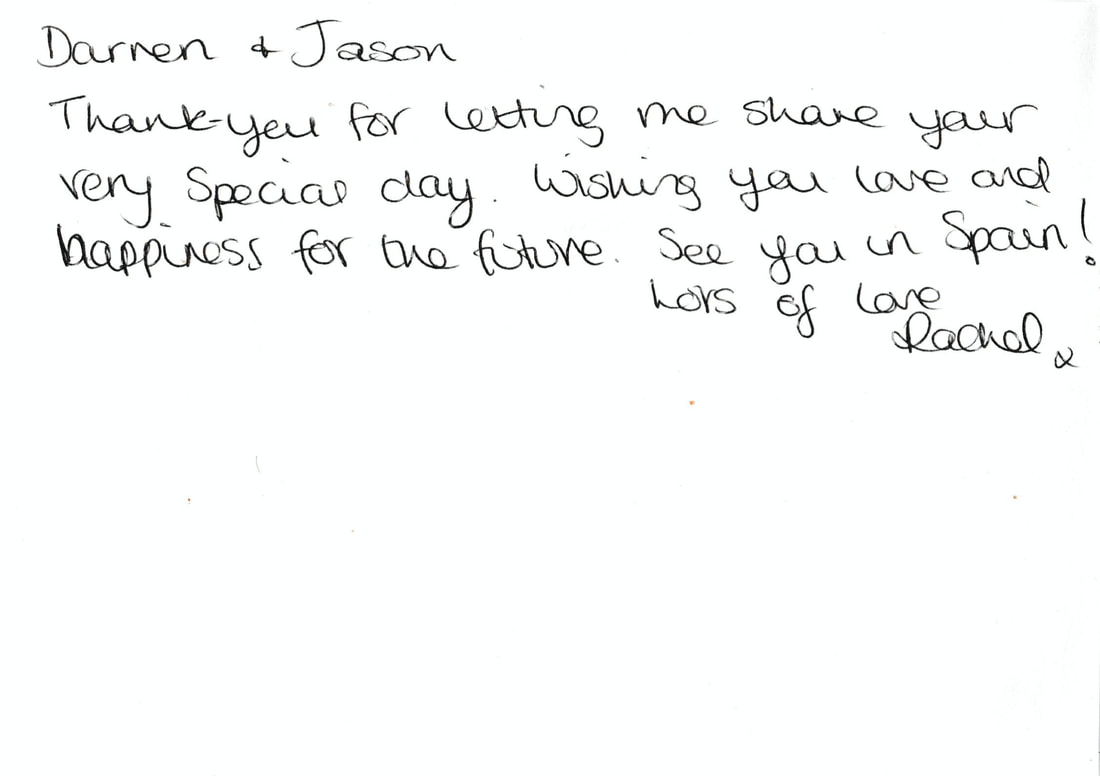 Darren & Jason
Thank-you for letting me share your
very Special day. Wishing you love and
happiness for the future. See you in Spain!
Lots of love
Rachel x